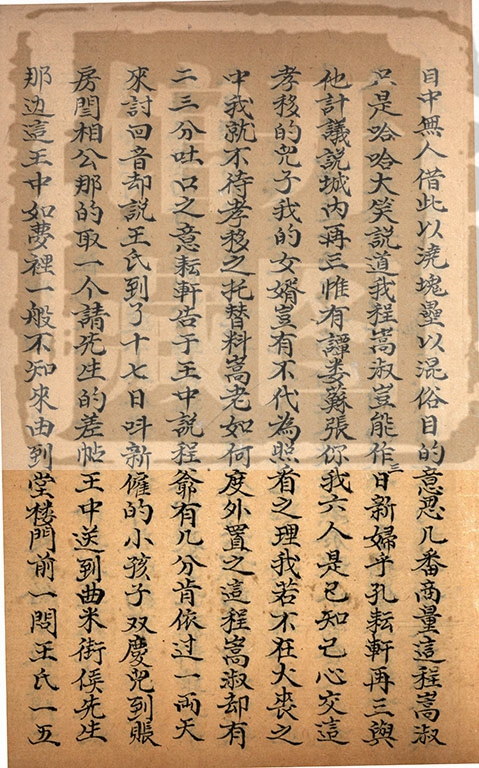 目中無人借此以澆塊壘以混俗目的意思几番商量這程嵩淑
只是哈哈大笑說道我程嵩淑豈能作三日新婦乎孔耘軒再三與
他計議說城內再三惟有譚娄蘇張你我六人是已知己心交這
孝移的兒子我的女婿豈有不代為照看之理我若不在大喪之
中我就不待孝移之托替料嵩老如何度外置之這程嵩淑却有
二三分吐口之意耘軒告于王中說程爺有几分肯依过一兩天
來討回音却説王氏到了十七日呌新僱的小孩子双慶兒到賬
房閆相公那的取一个請先生的差帖王中送到曲米街侯先生
那边這王中如夢裡一般不知來由到堂楼門前一問王氏一五